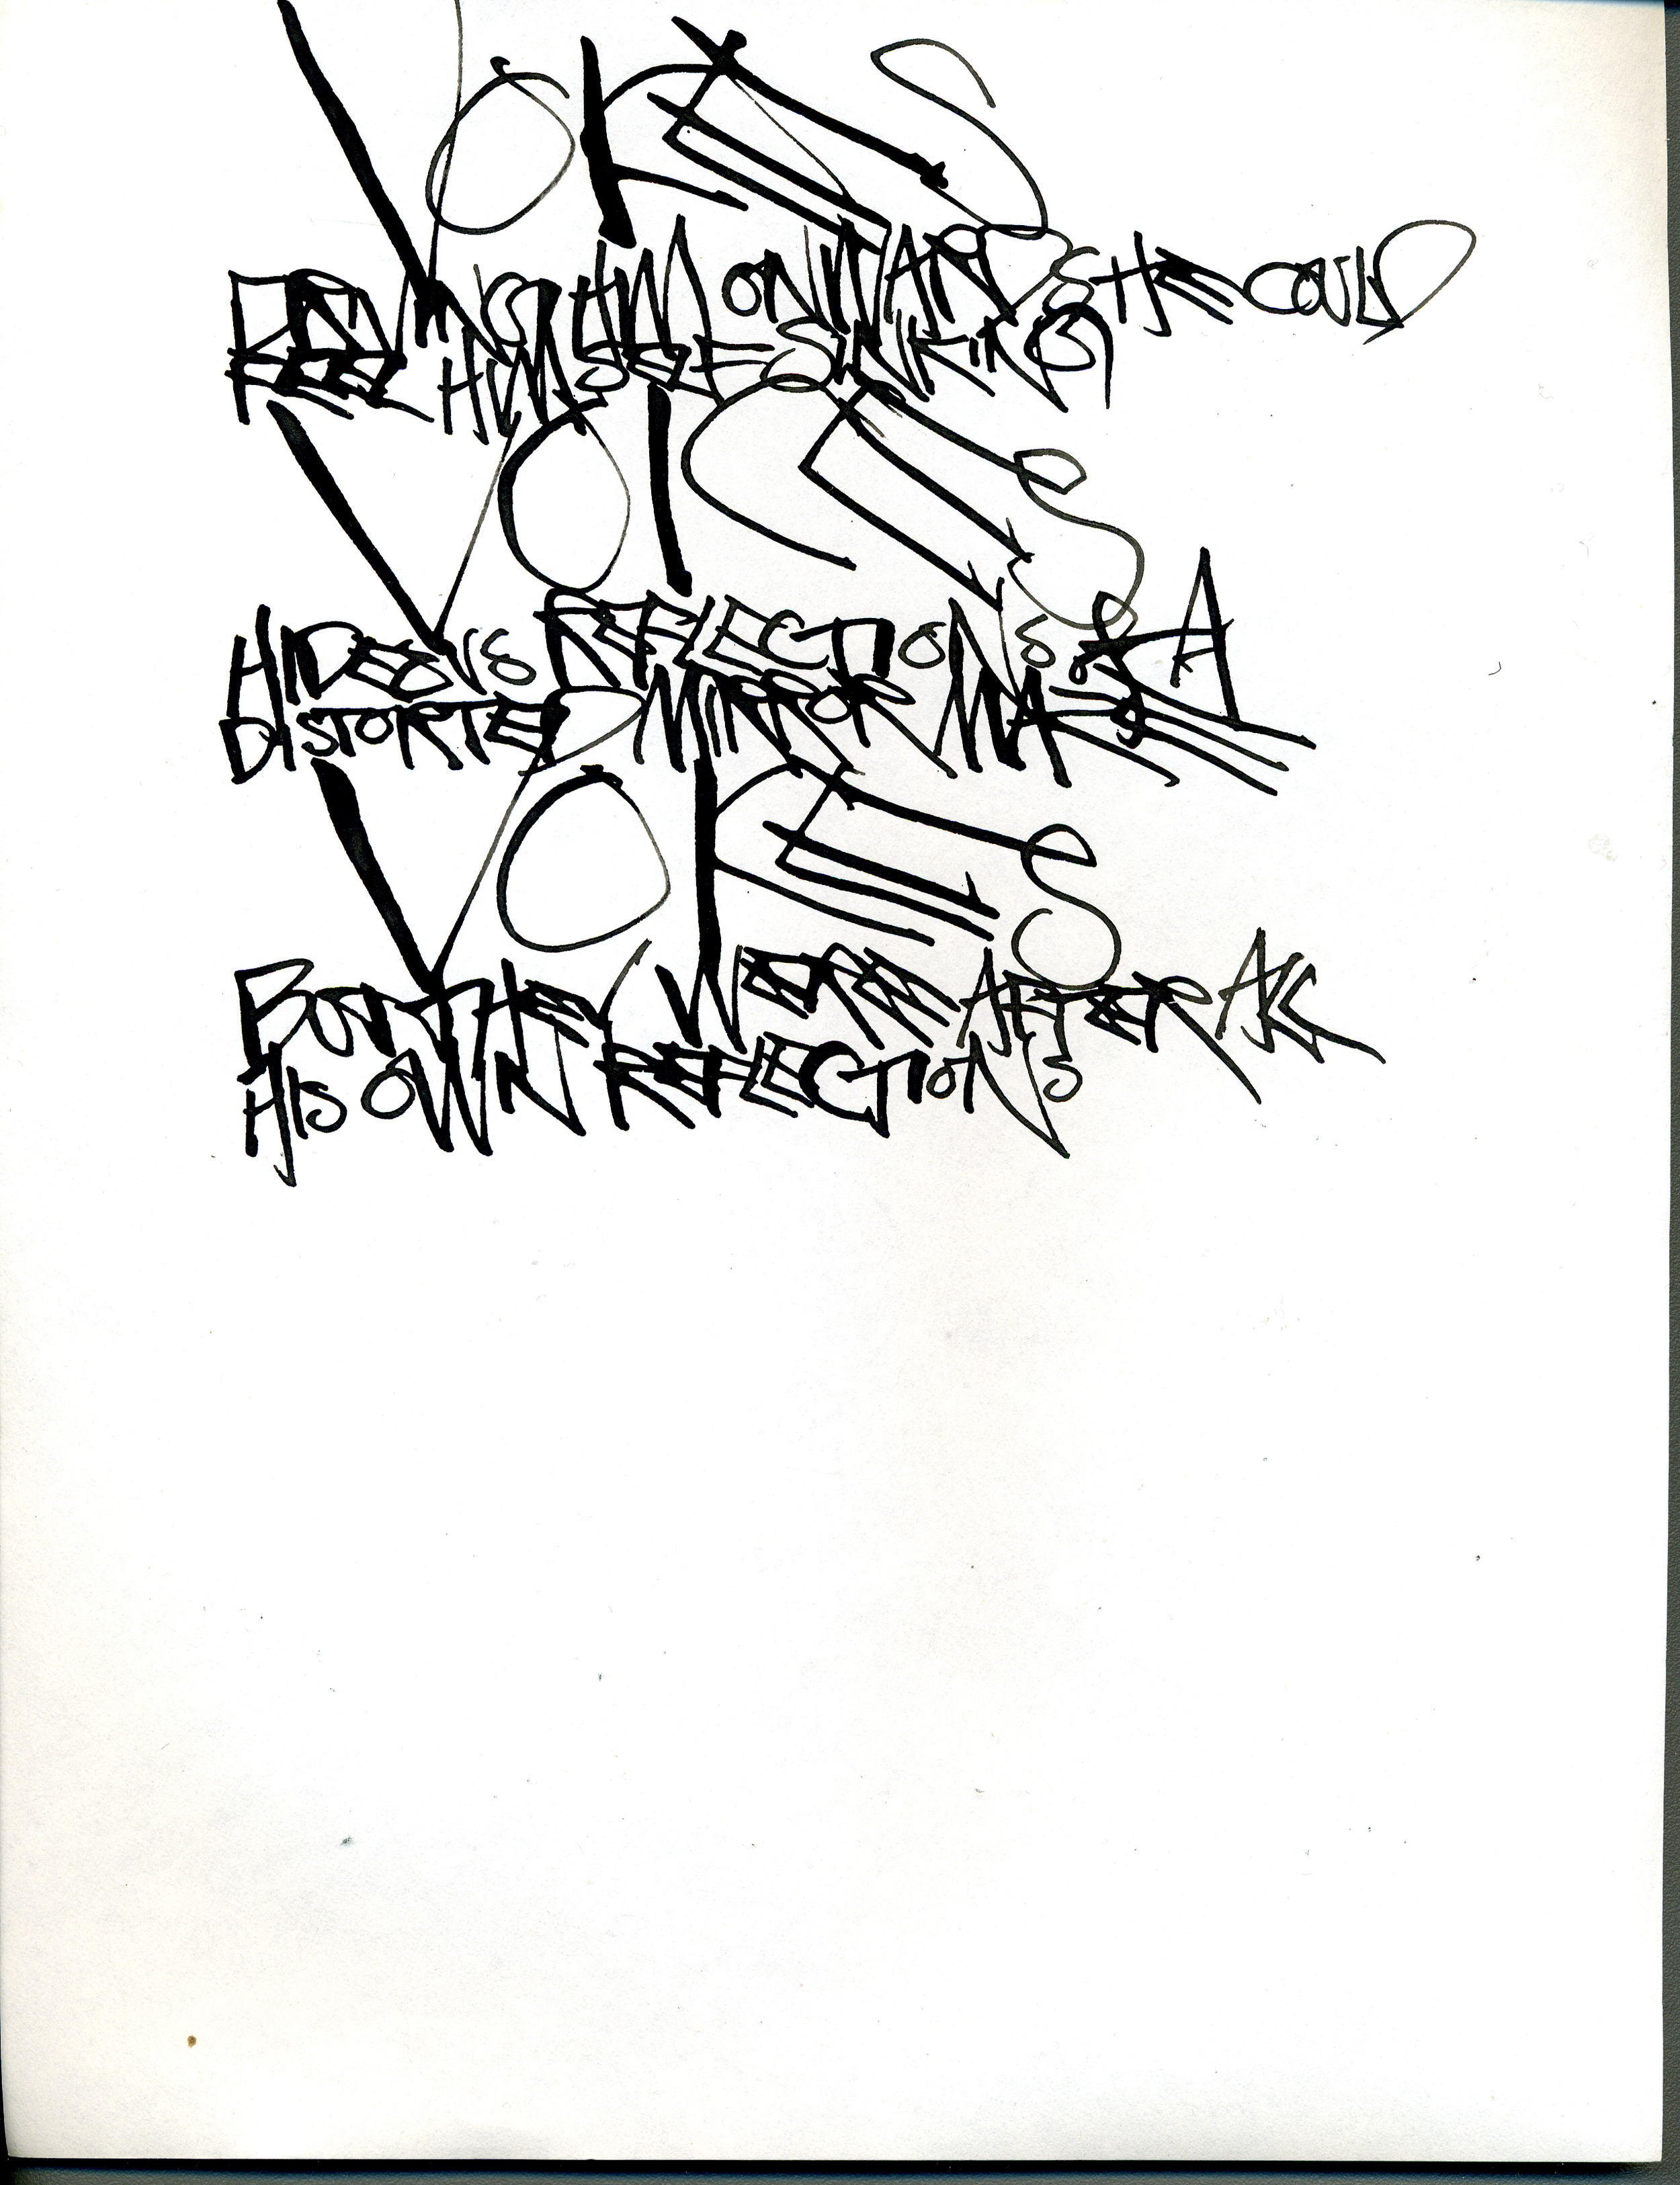 VOICES
DRIVING HIM ONWARDS HE COULD
FEEL HIMSELF SINKING
VOICES
HIDEOUS REFLECTIONS OF A
DISTORTED MIRROR MAZE
VOICES
BUT THEY WERE AFTER ALL
HIS OWN REFLECTIONS